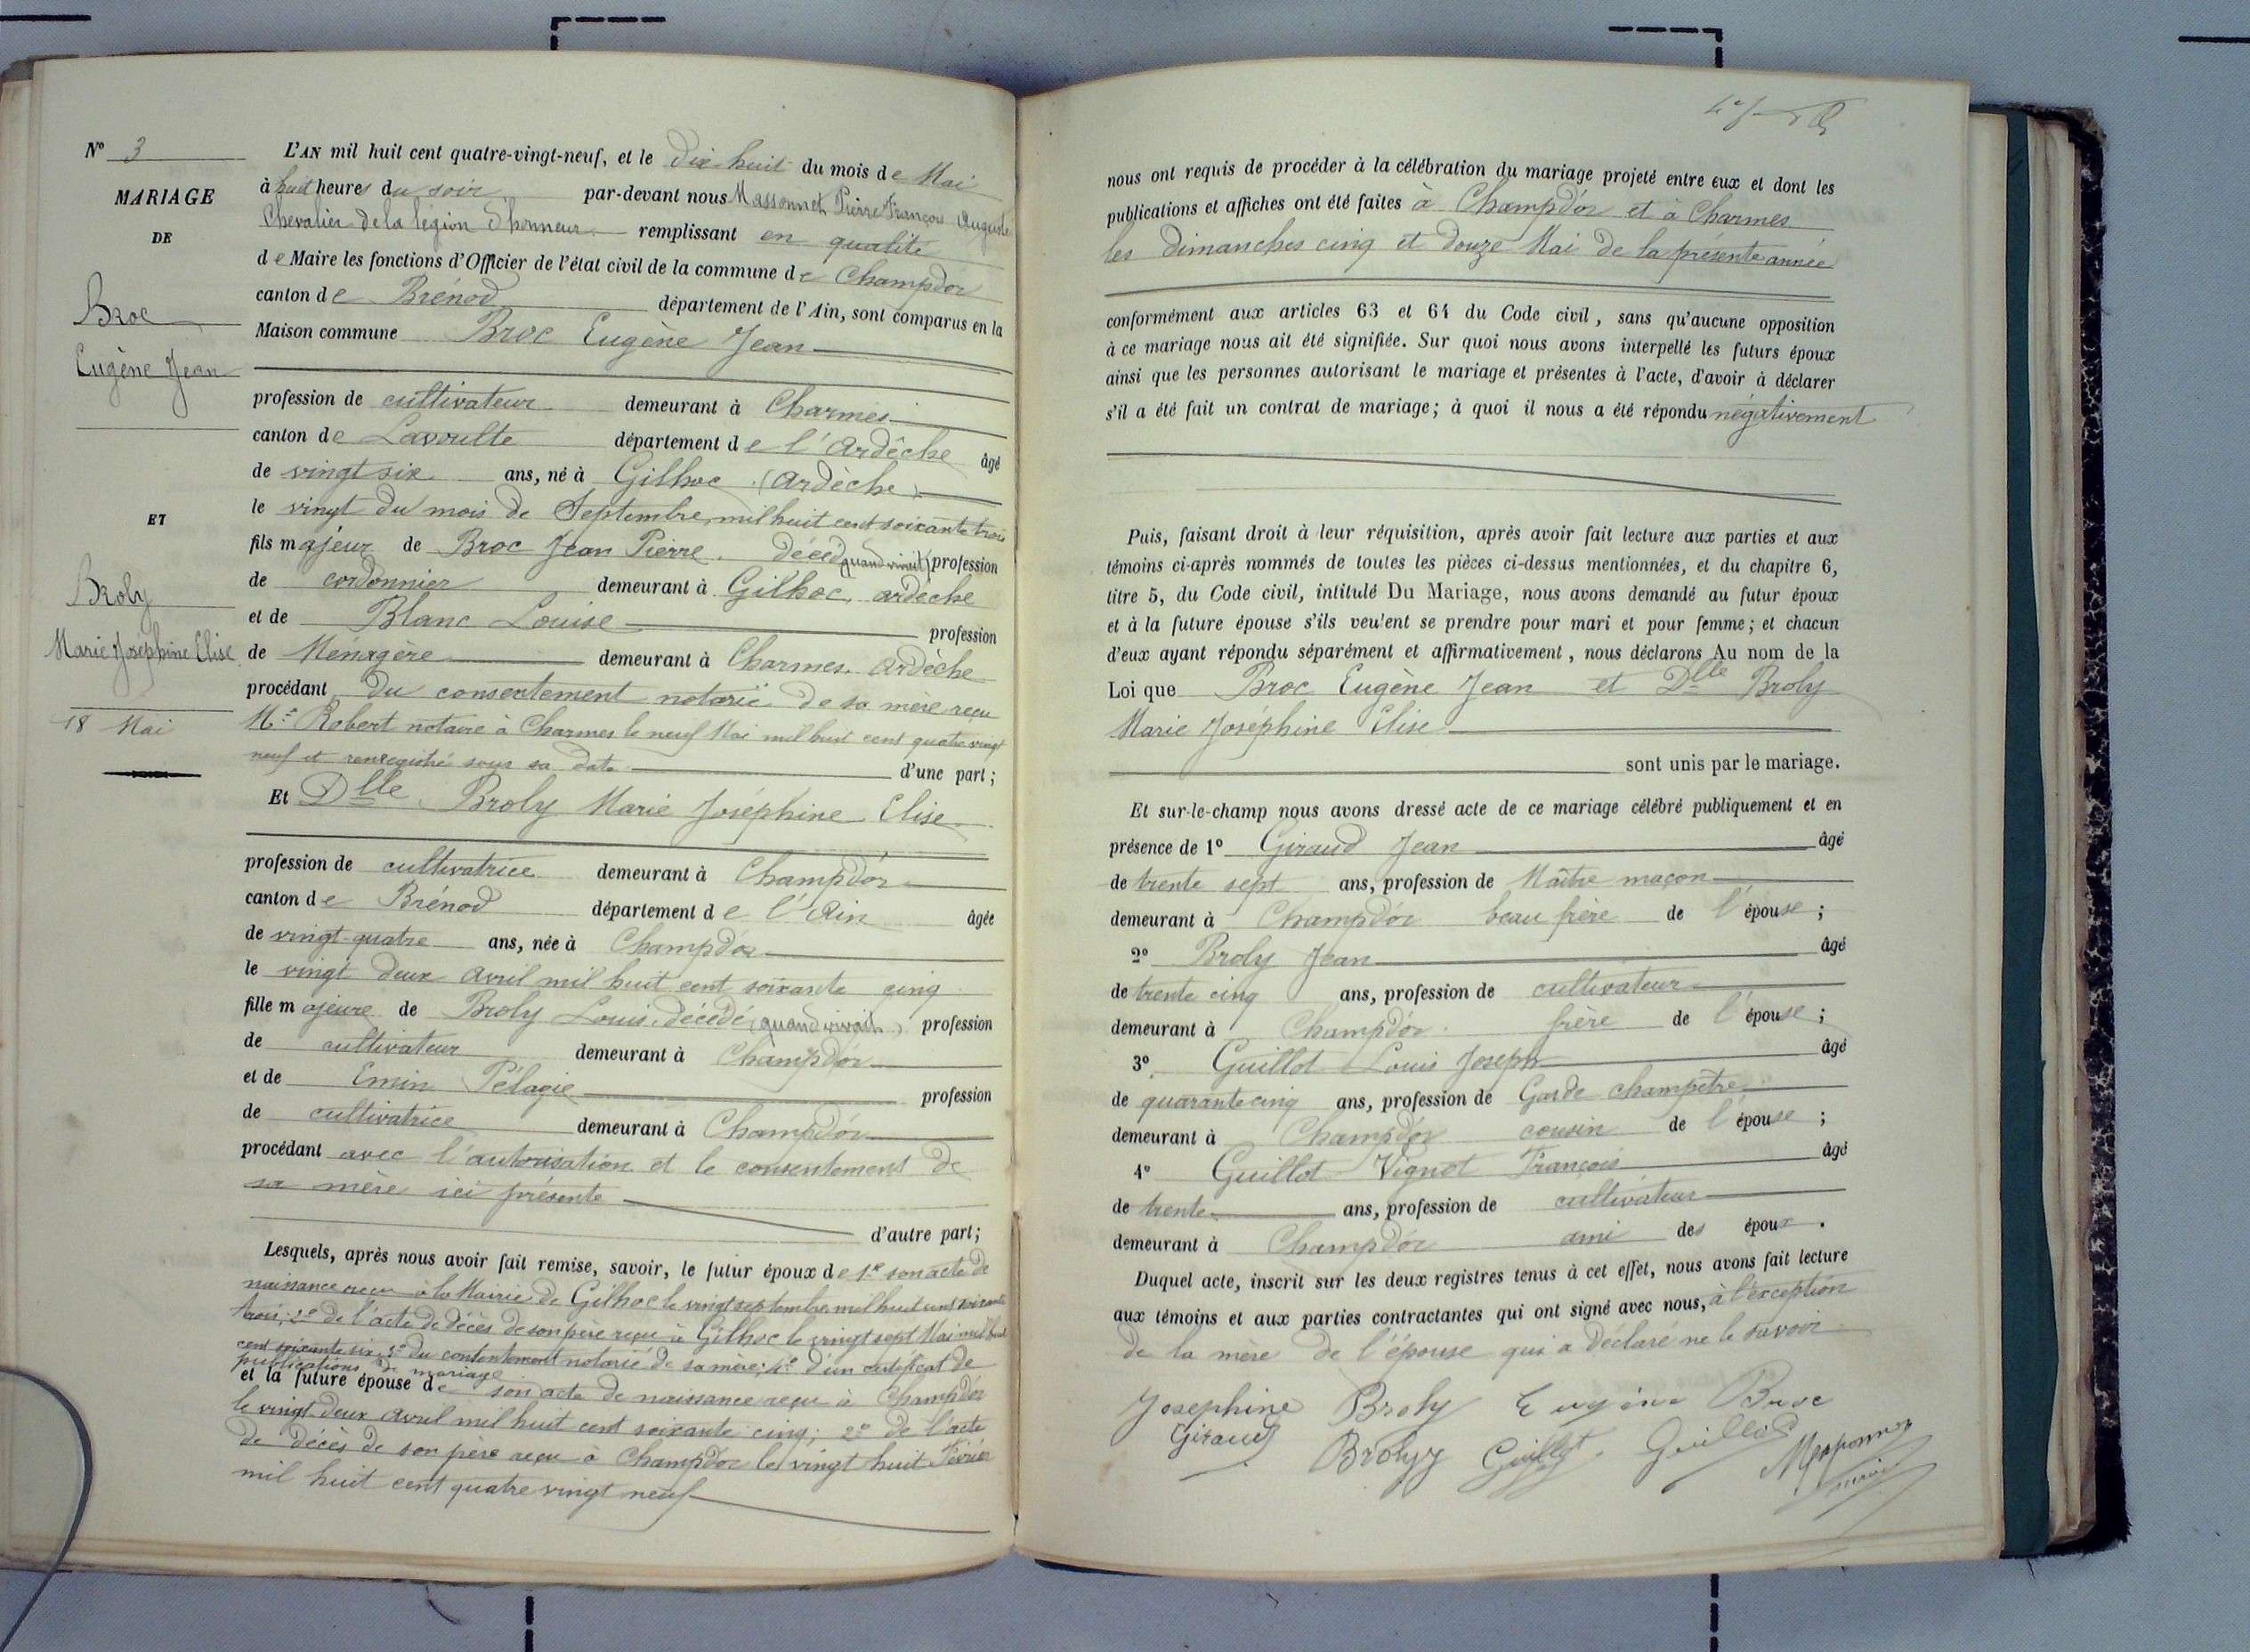 N° 3
MARIAGE
DE
Broc
Eugène Jean
ET
Broly
Marie Joséphine Elise
18 Mai
L'AN mil huit cent quatre-vingt-neuf, et le dix huit du mois de Mai
à huit heures du soir par-devant nous Massonnet Pierre François Auguste
Chevalier de la légion d'honneur remplissant en qualité
de Maire les fonctions d'Officier de l'état civil de la commune de Champdor
canton de Brénod département de l'Ain, sont comparus en la
Maison commune Broc Eugène Jean
profession de cultivateur demeurant à Charmes
canton de Lavoulte département de l'Ardèche âgé
de vingt six ans, né à Gilhoc (Ardèche)
le vingt du mois de Septembre mil huit cent soixante trois
fils majeur de Broc Jean Pierre décédé (quand vivait) profession
de cordonnier demeurant à Gilhoc, ardèche
et de Blanc Louise profession
de Ménagère demeurant à Charmes, Ardèche
procédant du consentement notarié de sa mère reçu
Me Robert notaire à Charmes le neuf Mai mil huit cent quatre vingt
neuf et enregistré sous sa date d'une part;
Et Dlle Broly Marie Joséphine Elise
profession de cultivatrice demeurant à Champdor
canton de Brénod département de l'Ain âgée
de vingt-quatre ans, née à Champdor
le vingt deux avril mil huit cent soixante cinq
fille majeure de Broly Louis, décédé (quand vivait) profession
de cultivateur demeurant à Champdor
et de Emin Pélagie profession
de cultivatrice demeurant à Champdor
procédant avec l'autorisation et le consentement de
sa mère ici présente
d'autre part;
Lesquels, après nous avoir fait remise, savoir, le futur époux de 1° son acte de
naissance reçu à la Mairie de Gilhoc le vingt septembre mil huit cent soixante
trois; 2° de l'acte de décès de son père reçu à Gilhoc le vingt sept Mai mil huit
cent soixante six; 3° du consentement notarié de sa mère; 4° d'un certificat de
publications de mariage
et la future épouse de son acte de naissance reçu à Champdor
le vingt deux avril mil huit cent soixante cinq; 2° de l'acte
de décès de son père reçu à Champdor le vingt huit Février
mil huit cent quatre vingt neuf
nous ont requis de procéder à la célébration du mariage projeté entre eux et dont les
publications et affiches ont été faites à Champdor et à Charmes
les dimanches cinq et douze Mai de la présente année
conformément aux articles 63 et 64 du Code civil, sans qu'aucune opposition
à ce mariage nous ait été signifiée. Sur quoi nous avons interpellé les futurs époux
ainsi que les personnes autorisant le mariage et présentes à l'acte, d'avoir à déclarer
s'il a été fait un contrat de mariage; à quoi il nous a été répondu négativement
Puis, faisant droit à leur réquisition, après avoir fait lecture aux parties et aux
témoins ci-après nommés de toutes les pièces ci-dessus mentionnées, et du chapitre 6,
titre 5, du Code civil, intitulé Du Mariage, nous avons demandé au futur époux
et à la future épouse s'ils veulent se prendre pour mari et pour femme; et chacun
d'eux ayant répondu séparément et affirmativement, nous déclarons Au nom de la
Loi que Broc Eugène Jean et Dlle Broly
Marie Joséphine Elise
sont unis par le mariage.
Et sur-le-champ nous avons dressé acte de ce mariage célébré publiquement et en
présence de 1° Giraud Jean âgé
de trente sept ans, profession de Maître maçon
demeurant à Champdor beau frère de l'épouse;
2° Broly Jean âgé
de trente cinq ans, profession de cultivateur
demeurant à Champdor frère de l'épouse;
3° Guillot Louis Joseph âgé
de quarante cinq ans, profession de Garde champêtre
demeurant à Champdor cousin de l'épouse;
4° Guillot Vignot François âgé
de trente ans, profession de cultivateur
demeurant à Champdor ami des époux.
Duquel acte, inscrit sur les deux registres tenus à cet effet, nous avons fait lecture
aux témoins et aux parties contractantes qui ont signé avec nous, à l'exception
de la mère de l'épouse qui a déclaré ne le savoir
Josephine Broly Eugène Broc
Giraud Broly Guillot Guillot Massonnet